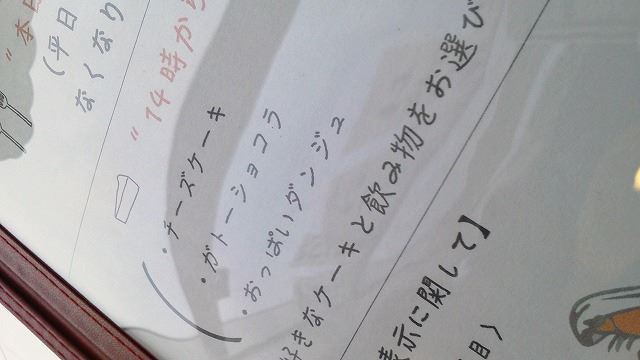 "本日
(平日
なくなり
"14時から
・チーズケーキ
・ガトーショコラ
・おっぱいダンジュ
好きなケーキと飲み物をお選び
表示に関して】
目)